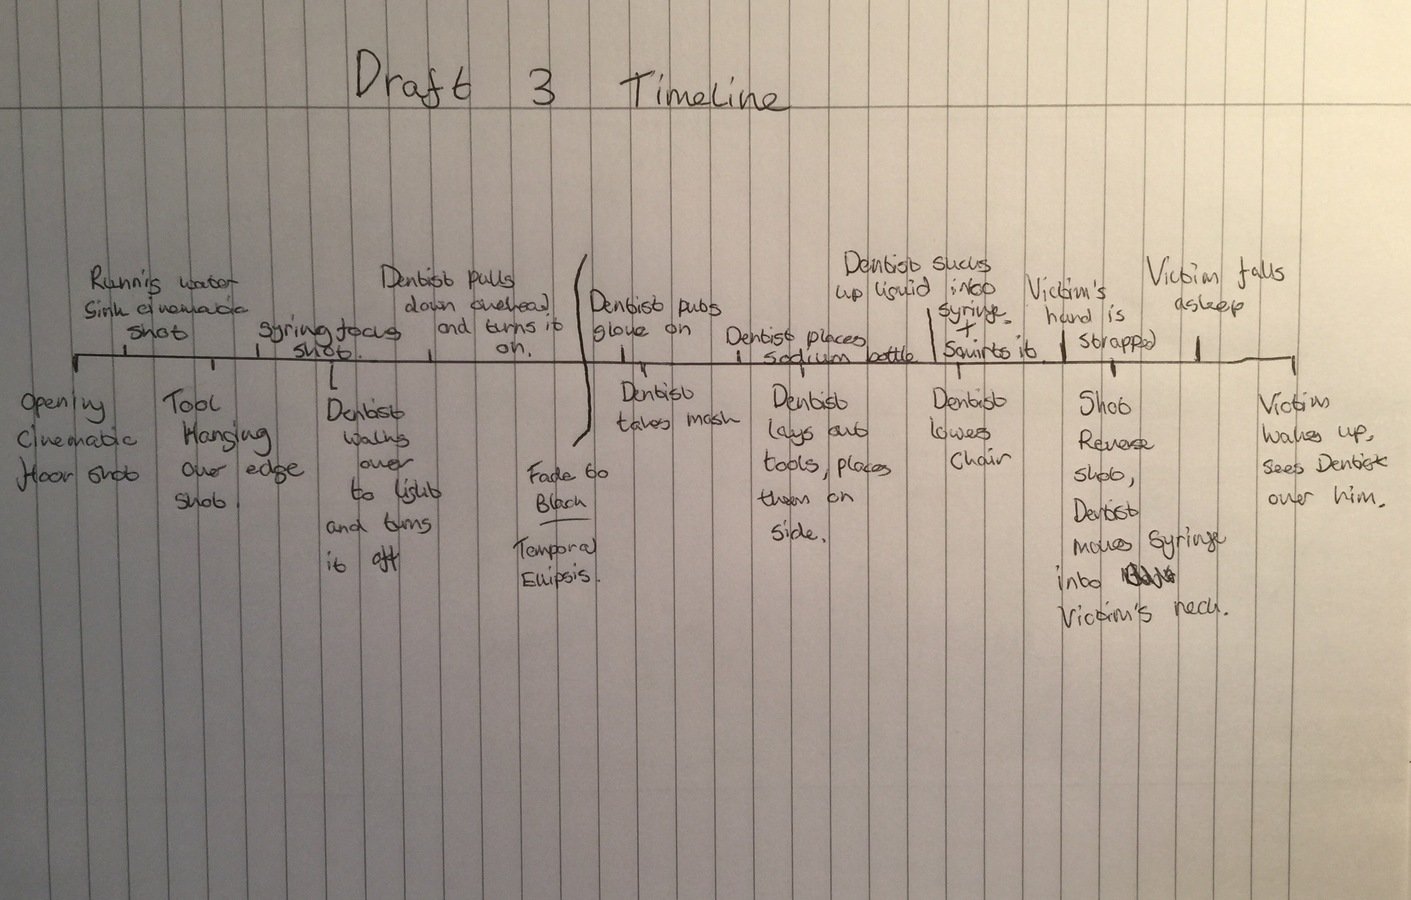 Draft 3 Timeline
Opening
Cinematic
floor shot
Runnig water
Sink cinematic
shot
Tool
Hanging
over edge
shot.
Syring focus
shot.
Dentist
walks
over
to light
and turns
it off
Dentist pulls
down overhead
and turns it
on.
Fade to
Black
Temporal
Ellipsis.
Dentist puts
glove on
Dentist
takes mask
Dentist places
sodium bottle
Dentist
lays out
tools, places
them on
side.
Dentist sucks
up liquid into
syringe
+
Squirts it
Dentist
lowes
chair
Victim's
hand is
strapped
Shot
Reverse
shot,
Dentist
moves syringe
into
Victim's neck.
Victim falls
asleep
Victim
wakes up,
sees Dentist
over him.